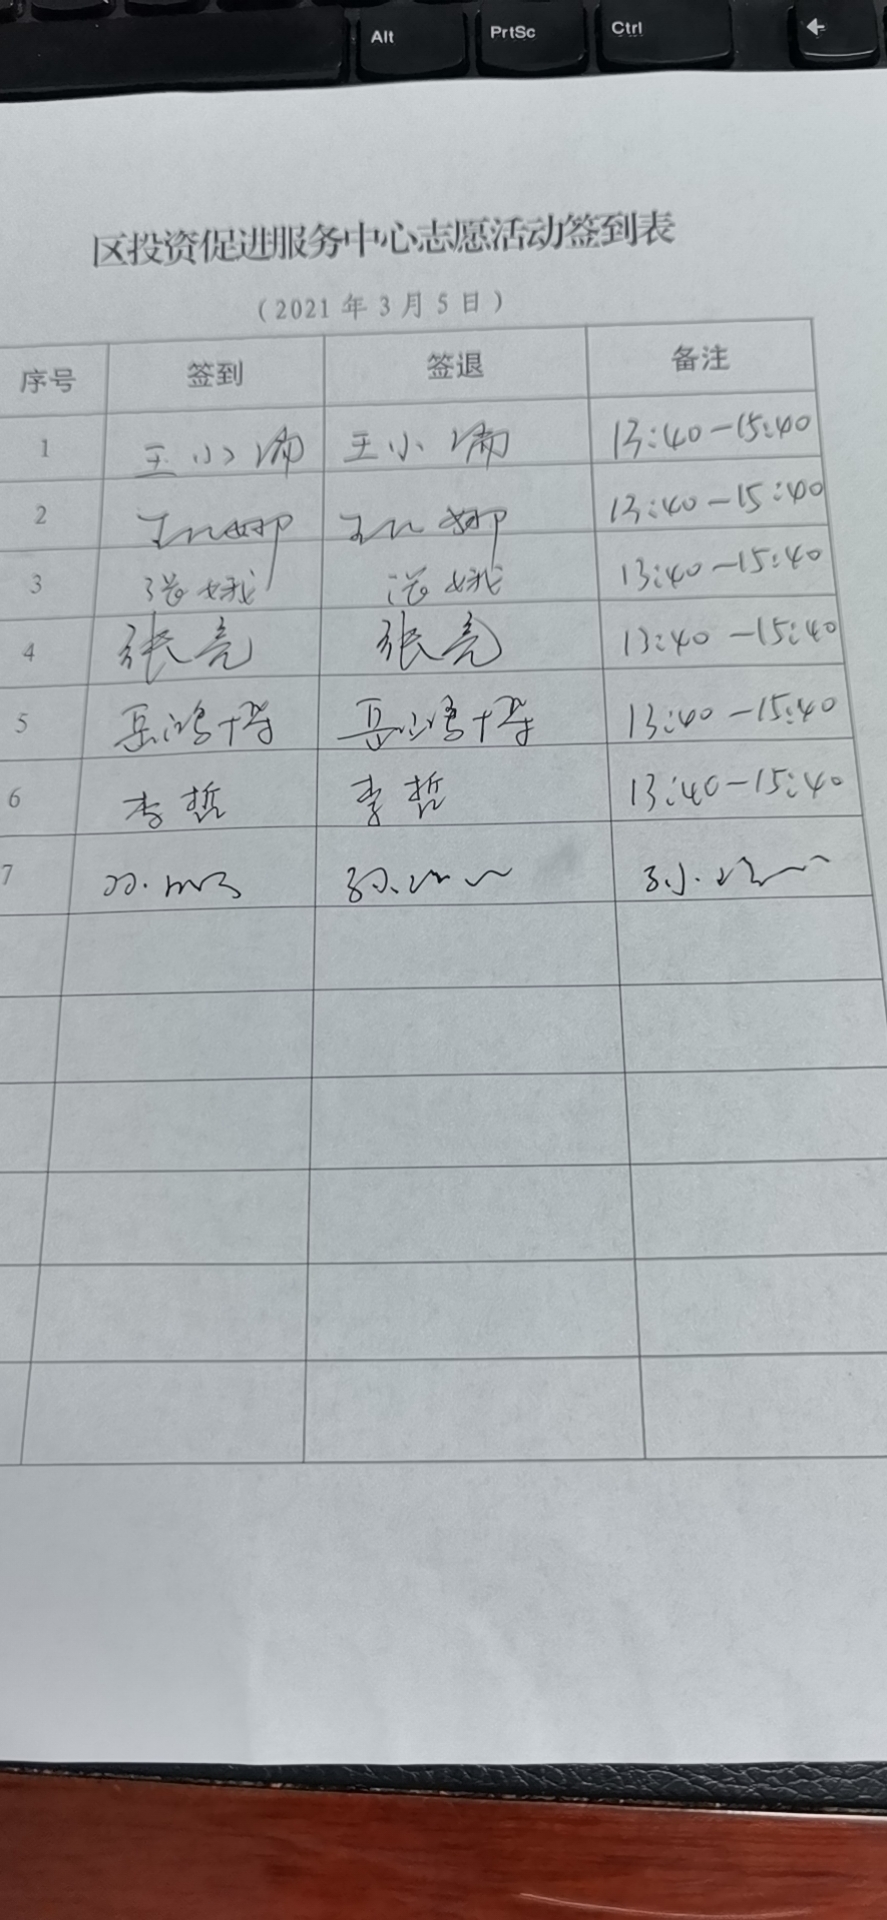 Alt PrtSc Ctrl
区投资促进服务中心志愿活动签到表
（2021 年 3 月 5 日）
序号 签到 签退 备注
1 王小 王小 13:40-15:40
2 娜 娜 13:40-15:40
3 张娥 张娥 13:40-15:40
4 张亮 张亮 13:40-15:40
5 岳鸿博 岳鸿博 13:40-15:40
6 李哲 李哲 13:40-15:40
7